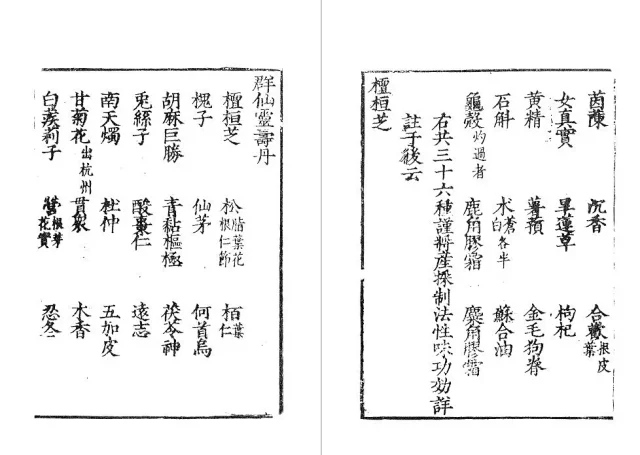 群仙靈壽丹
檀桓芝 松脂葉花根仁節 栢葉仁
槐子 仙茅 何首烏
胡麻巨勝 青黏樞極 茯苓神
兎絲子 酸棗仁 遠志
南天燭 杜仲 五加皮
甘菊花出杭州 貫衆 木香
白蒺莉子 根芽花實 忍冬
茵蔯 沉香 合歡根皮葉
女真實 旱蓮草 枸杞
黃精 薯蕷 金毛狗脊
石斛 朮蒼白各半 蘇合油
龜殼灼過者 鹿角膠霜 麋角膠霜
右共三十六種謹將産採制法性味功効詳
註于後云
檀桓芝